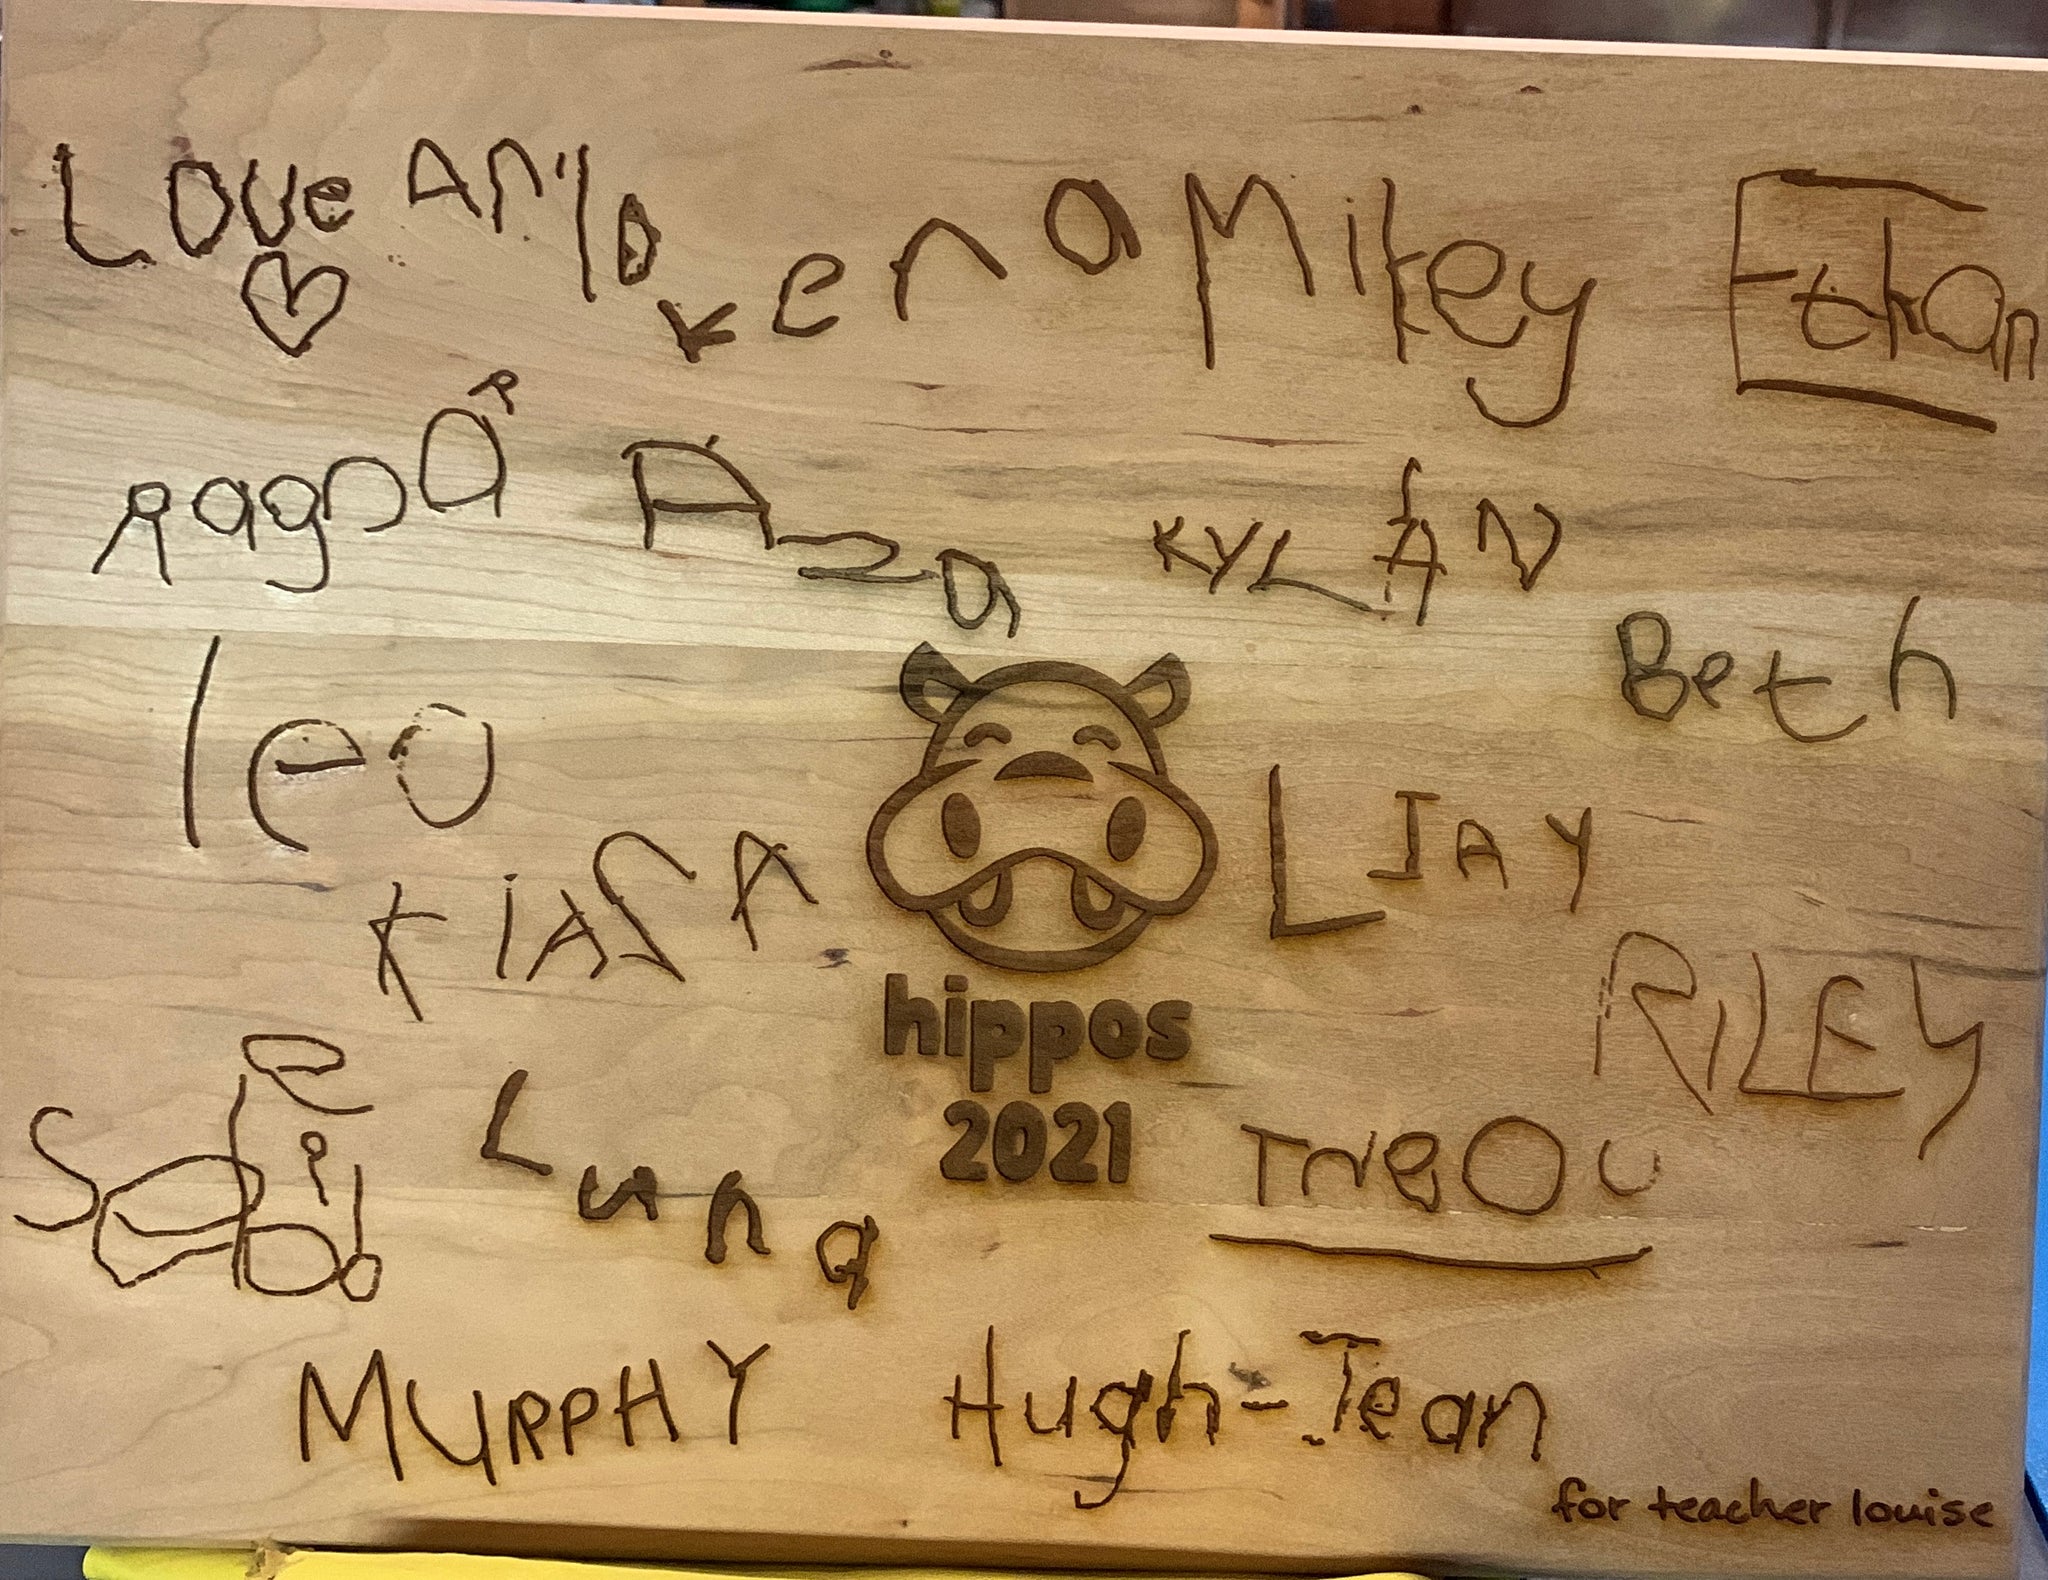 Love Arlo
kena
Mikey
Ethan
Ragnar
Aza
KYLAN
Beth
leo
KiASA
LJAY
hippos
2021
RILEY
Luna
MURPHY
Hugh-Jean
for teacher louise